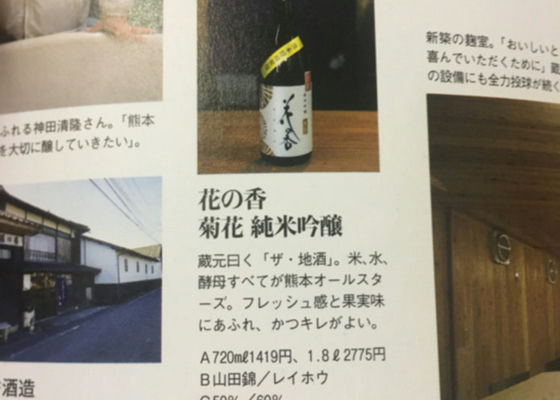 ふれる神田清隆さん。「熊本
を大切に醸していきたい」。
酒造
花の香
花の香
菊花 純米吟醸
蔵元曰く「ザ・地酒」。米、水、
酵母すべてが熊本オールスタ
ーズ。フレッシュ感と果実味
にあふれ、かつキレがよい。
A720㎖1419円、1.8ℓ2775円
B山田錦／レイホウ
C50%／60%
新築の麹室。「おいしいと
喜んでいただくために」蔵
の設備にも全力投球が続く